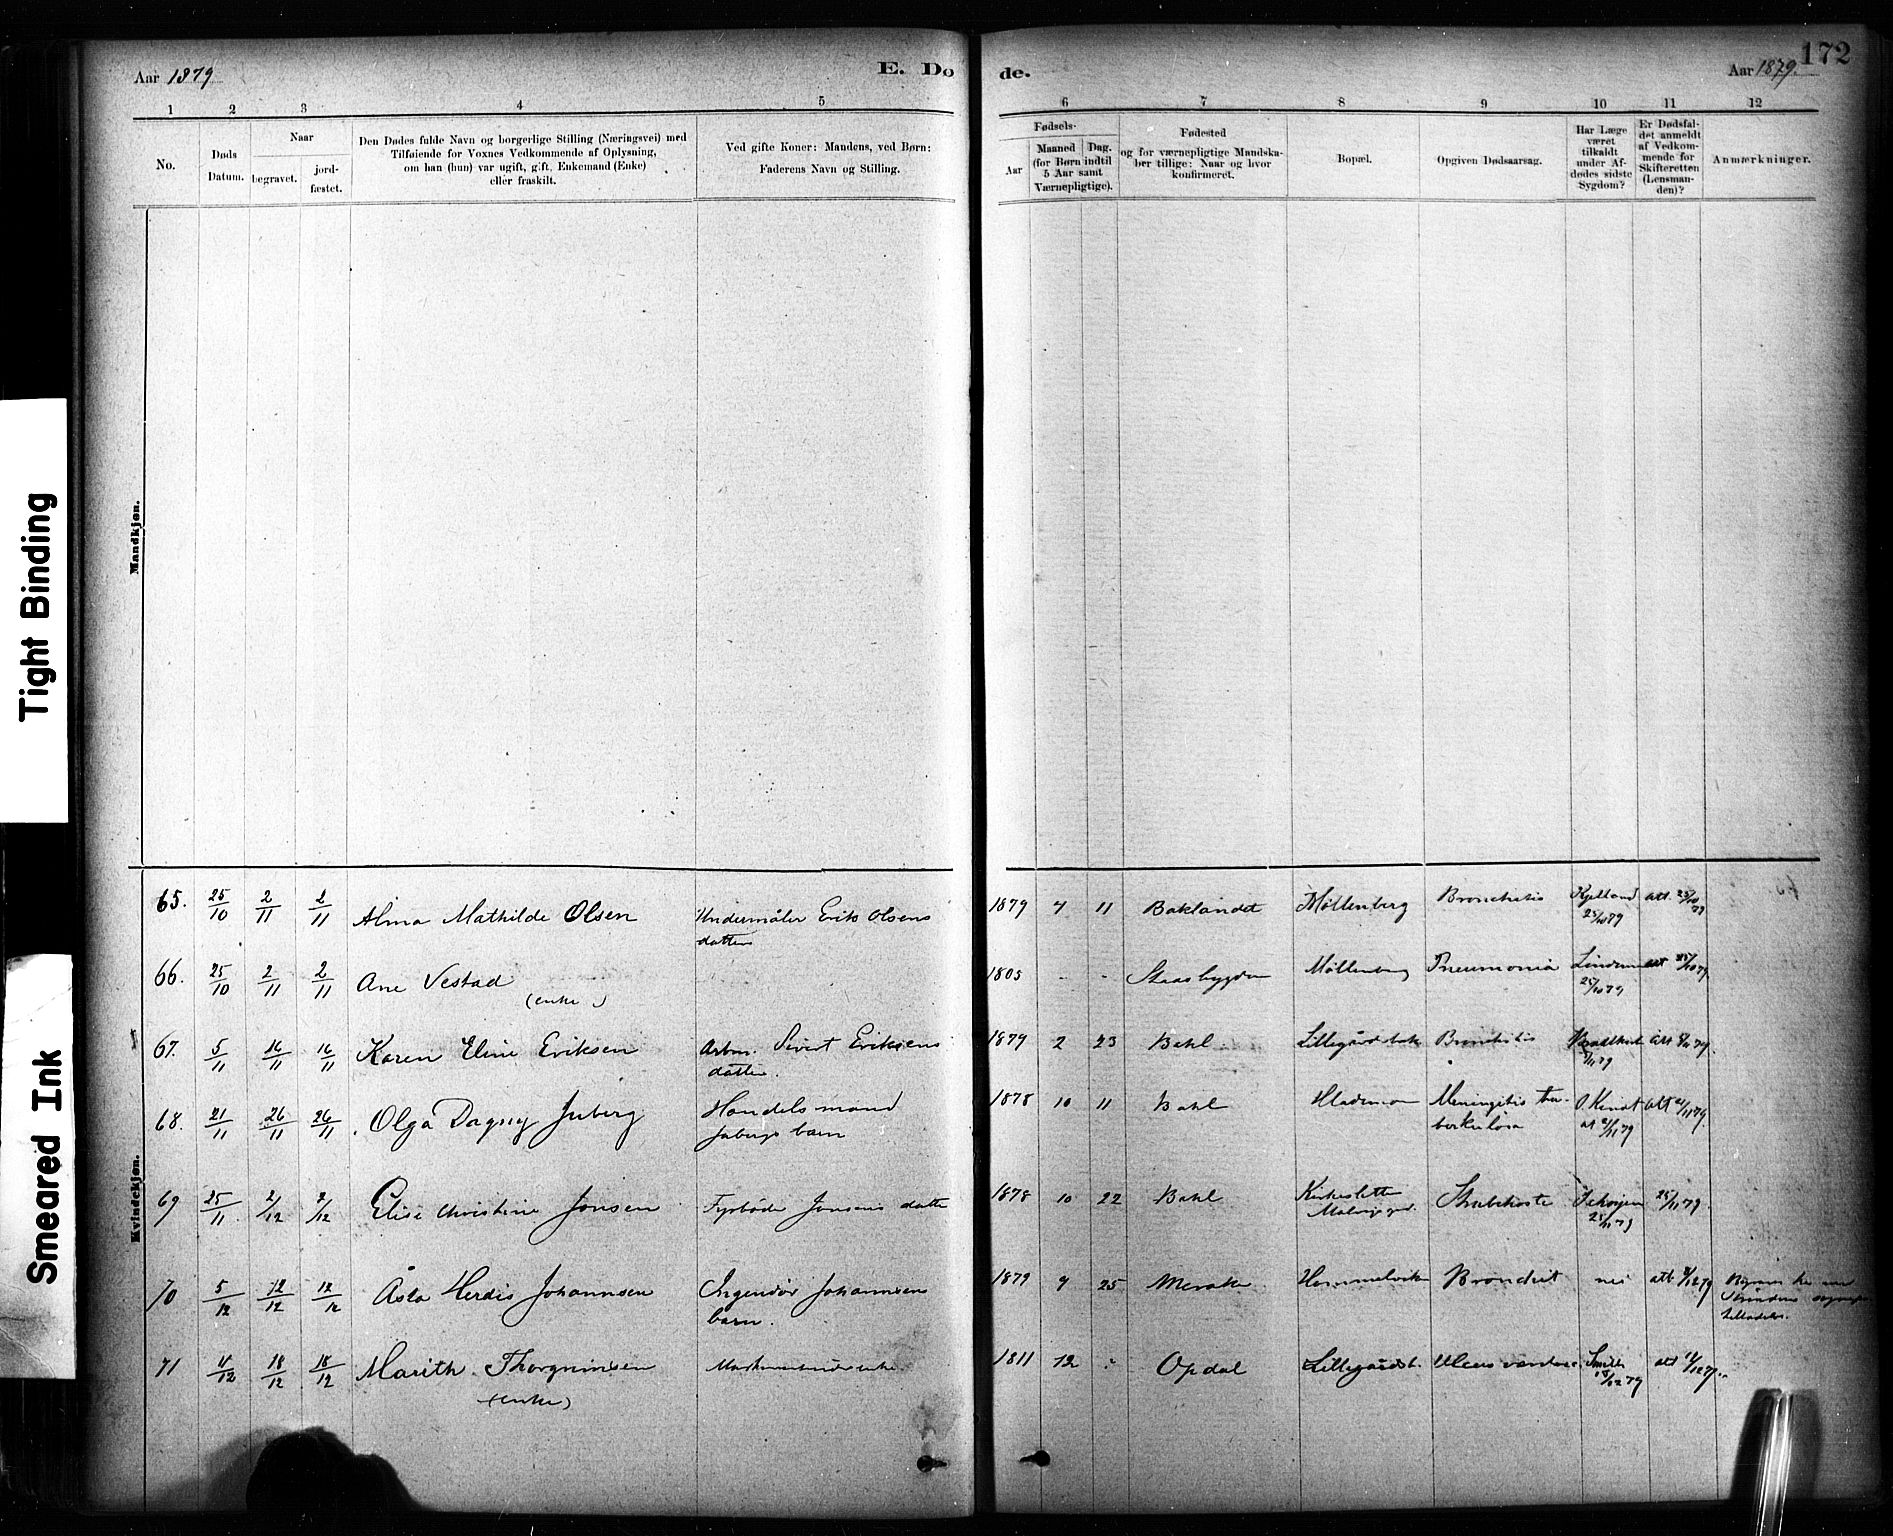 Tight Binding
Smeared Ink
Aar 1879
E. Do
de.
Aar 1879.
172
1 2 3 4 5 6 7 8 9 10 11 12
No.
Døds Datum.
Naar
begravet.
jord-
fæstet.
Den Dødes fulde Navn og borgerlige Stilling (Næringsvei) med
Tilføiende for Voxnes Vedkommende af Oplysning,
om han (hun) var ugift, gift, Enkemand (Enke)
eller fraskilt.
Ved gifte Koner: Mandens, ved Børn:
Faderens Navn og Stilling.
Fødsels-
Aar
Maaned Dag.
(for Børn indtil
5 Aar samt
Værnepligtige).
Fødested
og for værnepligtige Mandska-
ber tillige: Naar og hvor
konfirmeret.
Bopæl.
Opgiven Dødsaarsag.
Har Læge
været
tilkaldt
under Af-
dødes sidste
Sygdom?
Er Dødsfal-
det anmeldt
af Vedkom-
mende for
Skifteretten
(Lensman-
den)?
Anmærkninger.
Mandkjøn.
Kvindekjøn.
65. 25/10 2/11 2/11 Alma Mathilde Olsen Undermåler Erik Olsens 1879 7 11 Baklandet Møllenberg Bronchitis Kjelland att. 25/10 79
datter 25/10 79
66. 25/10 2/11 2/11 Ane Vestad 1805 - - Stadsbygden Møllenberg Pneumonia att 25/10 79
(enke) 25/10 79
67. 5/11 16/11 16/11 Karen Eline Eriksen Arbm. Sivert Eriksens 1879 2 23 Bakl. Lillegårdsbak Bronchitis att
datter.
68. 21/11 26/11 26/11 Olga Dagny Juberg Handelsmand 1878 10 11 Bakl Meningitis tu- att 21/11 79.
Jubergs barn berkuløsa at 21/11 79
69 25/11. 2/12 2/12 Elise Christine Jonsen Fyrbøder Jonsens datter 1878 10 22 Bakl Kirkesletten Strubehoste 25/11 79.
25/11 79
70 5/12 12/12 12/12 Åsta Herdis Johannsen Ingeniør Johannsens 1879 9 25 Merak Hommelviken Bronchit nei att
barn.
71 11/12 18/12 18/12 Marith Thorgrimsen 1811 12 - Opdal Lillegårdsb. Ulcus Smith att
(enke)